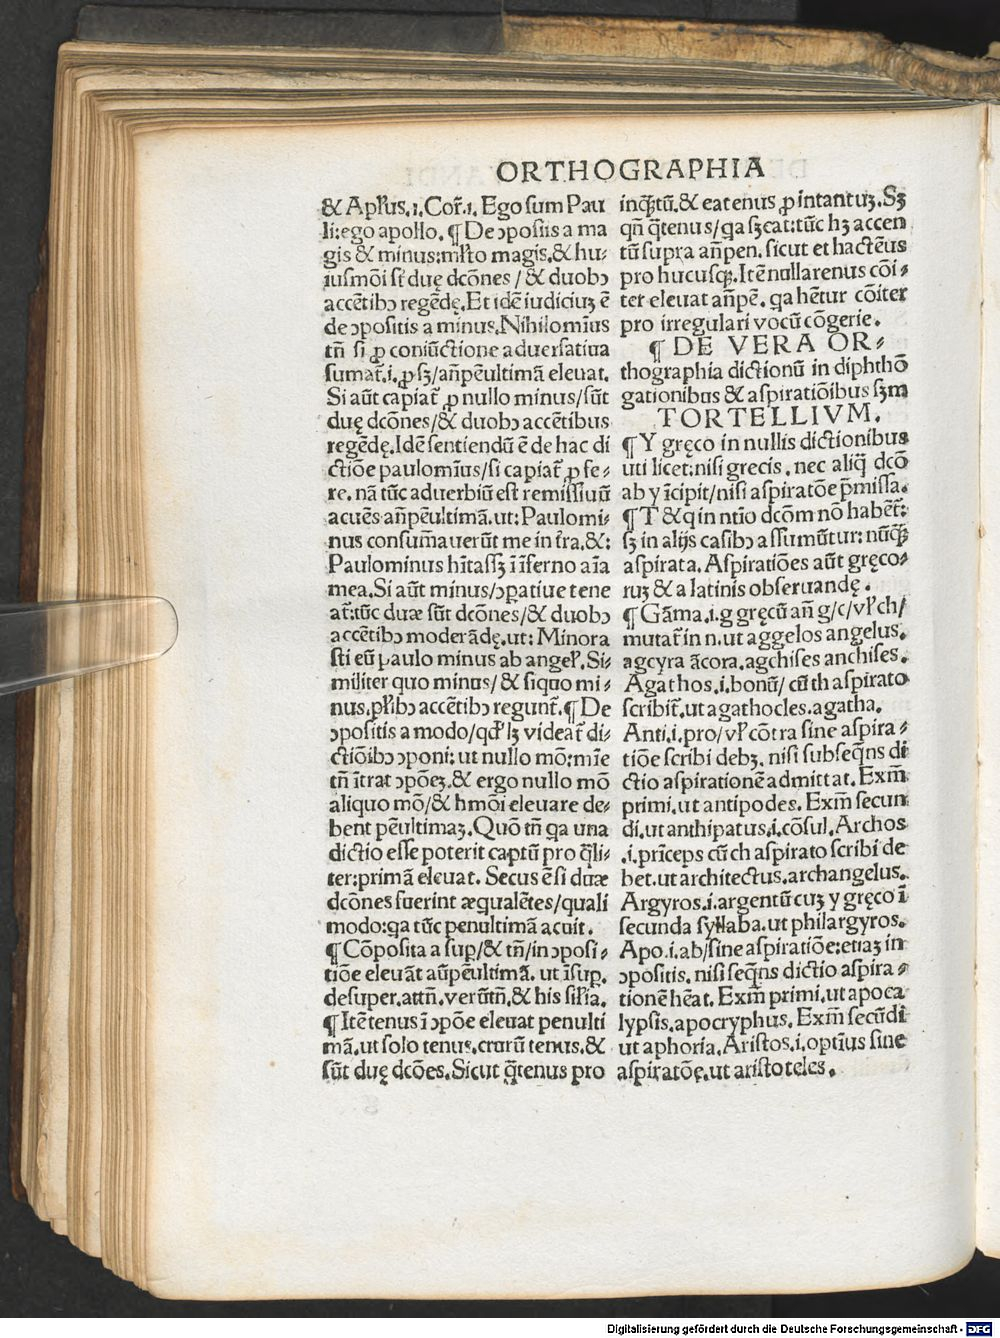 ORTHOGRAPHIA
& Apl'us.1. Cor̃.1. Ego sum Pau
li:ego apollo. ¶ De ↄposiis a ma
gis & minus:ml'to magis.& hu⸗
iusmōi st̃ duę dcōnes / & duobꝰ
accētibꝰ regēdę. Et idē iudiciuꝫ ē
de ↄpositis a minus. Nihilomiūs
tñ si ꝑ coniūctione aduersatiua
sumat̃.i.ꝓ sꝫ/añpēultimā eleuat.
Si aūt capiat̃ ꝓ nullo minus/sūt
duę dcōnes/& duobꝰ accētibus
regēdę. Idē sentiendū ē de hac di
ctiōe paulomiūs/si capiat̃ ꝓ fe⸗
re. nā tūc aduerbiū est remissiuū
acuēs añpēultimā. ut: Paulomi⸗
nus consum̄auerūt me in t̃ra.&:
Paulominus hītassꝫ ī īferno aīa
mea. Si aūt minus/ↄꝑatiue tene
at̃:tūc duæ sūt dcōnes/& duobꝰ
accētibꝰ moderādę.ut: Minora
sti eū paulo minus ab angel'. Si⸗
militer quo minus/ & siquo mi⸗
nus.pl'ibꝰ accētibꝰ regunt̃.¶ De
ↄpositis a modo/qd' lꝫ videat̃ di⸗
ctiōibꝰ ↄponi: ut nullo mō: mīe
tñ ītrat ↄpōeꝫ.& ergo nullo mō
aliquo mō/& hmōi eleuare de⸗
bent pēultimaꝫ. Quō tñ qa una
dictio esse poterit captū pro q̄li⸗
ter:primā eleuat. Secus ē si duæ
dcōnes fuerint æqualētes/quali
modo:qa tūc penultimā acuit.
¶ Cōposita a suꝑ/& tñ/in ↄposi⸗
tiōe eleuāt añpēultimā. ut īsuꝑ.
desuper.attñ.verūtñ.& his sil'ia.
¶ Itē tenus ī ↄpōe eleuat penulti
mā.ut solo tenus.crurū tenus.&
sūt duę dcōes. Sicut q̄tenus pro
inqꝫtū.& eatenus ꝓ intantuꝫ. Sꝫ
qñ q̄tenus/qa sꝫcat:tūc hꝫ accen
tū supra añpen. sicut et hactēus
pro hucusqꝫ. Itē nullarenus cōi⸗
ter eleuat añpē. qa hētur cōiter
pro irregulari vocū cōgerie.
¶ DE VERA OR⸗
thographia dictionū in diphthō
gationibus & aspiratiōibus sꝫm
TORTELLIVM.
¶ Y gręco in nullis dictionibus
uti licet:nisi grecis. nec aliq̄ dcō
ab y īcipit/nisi aspiratōe p̄missa.
¶ T & q in ntio dcōm nō habēt̃:
sꝫ in alijs casibꝰ assumūtur: nūqꝫ
aspirata. Aspiratiōes aūt gręco⸗
ruꝫ & a latinis obseruandę.
¶ Gāma.i.g gręcū añ g/c/vl' ch/
mutat̃ in n.ut aggelos angelus.
agcyra ācora.agchises anchises.
Agathos.i.bonū/ cū th aspirato
scribit̃.ut agathocles.agatha.
Anti.i.pro/vl' cōtra sine aspira⸗
tiōe scribi debꝫ. nisi subseq̄ns di
ctio aspirationē admittat. Exm̃
primi.ut antipodes. Exm̃ secun
di.ut anthipatus.i.cōsul. Archos
.i.prīceps cū ch aspirato scribi de
bet.ut architectus.archangelus.
Argyros.i.argentū cuꝫ y gręco ī
secunda syllaba.ut philargyros.
Apo.i.ab/sine aspiratiōe:etiaꝫ in
ↄpositis. nisi seq̄ns dictio aspira⸗
tionē hēat. Exm̃ primi.ut apoca
lypsis.apocryphus. Exm̃ secūdi
ut aphoria. Aristos.i.optīus sine
aspiratōe.ut aristoteles.
Digitalisierung gefördert durch die Deutsche Forschungsgemeinschaft - DFG